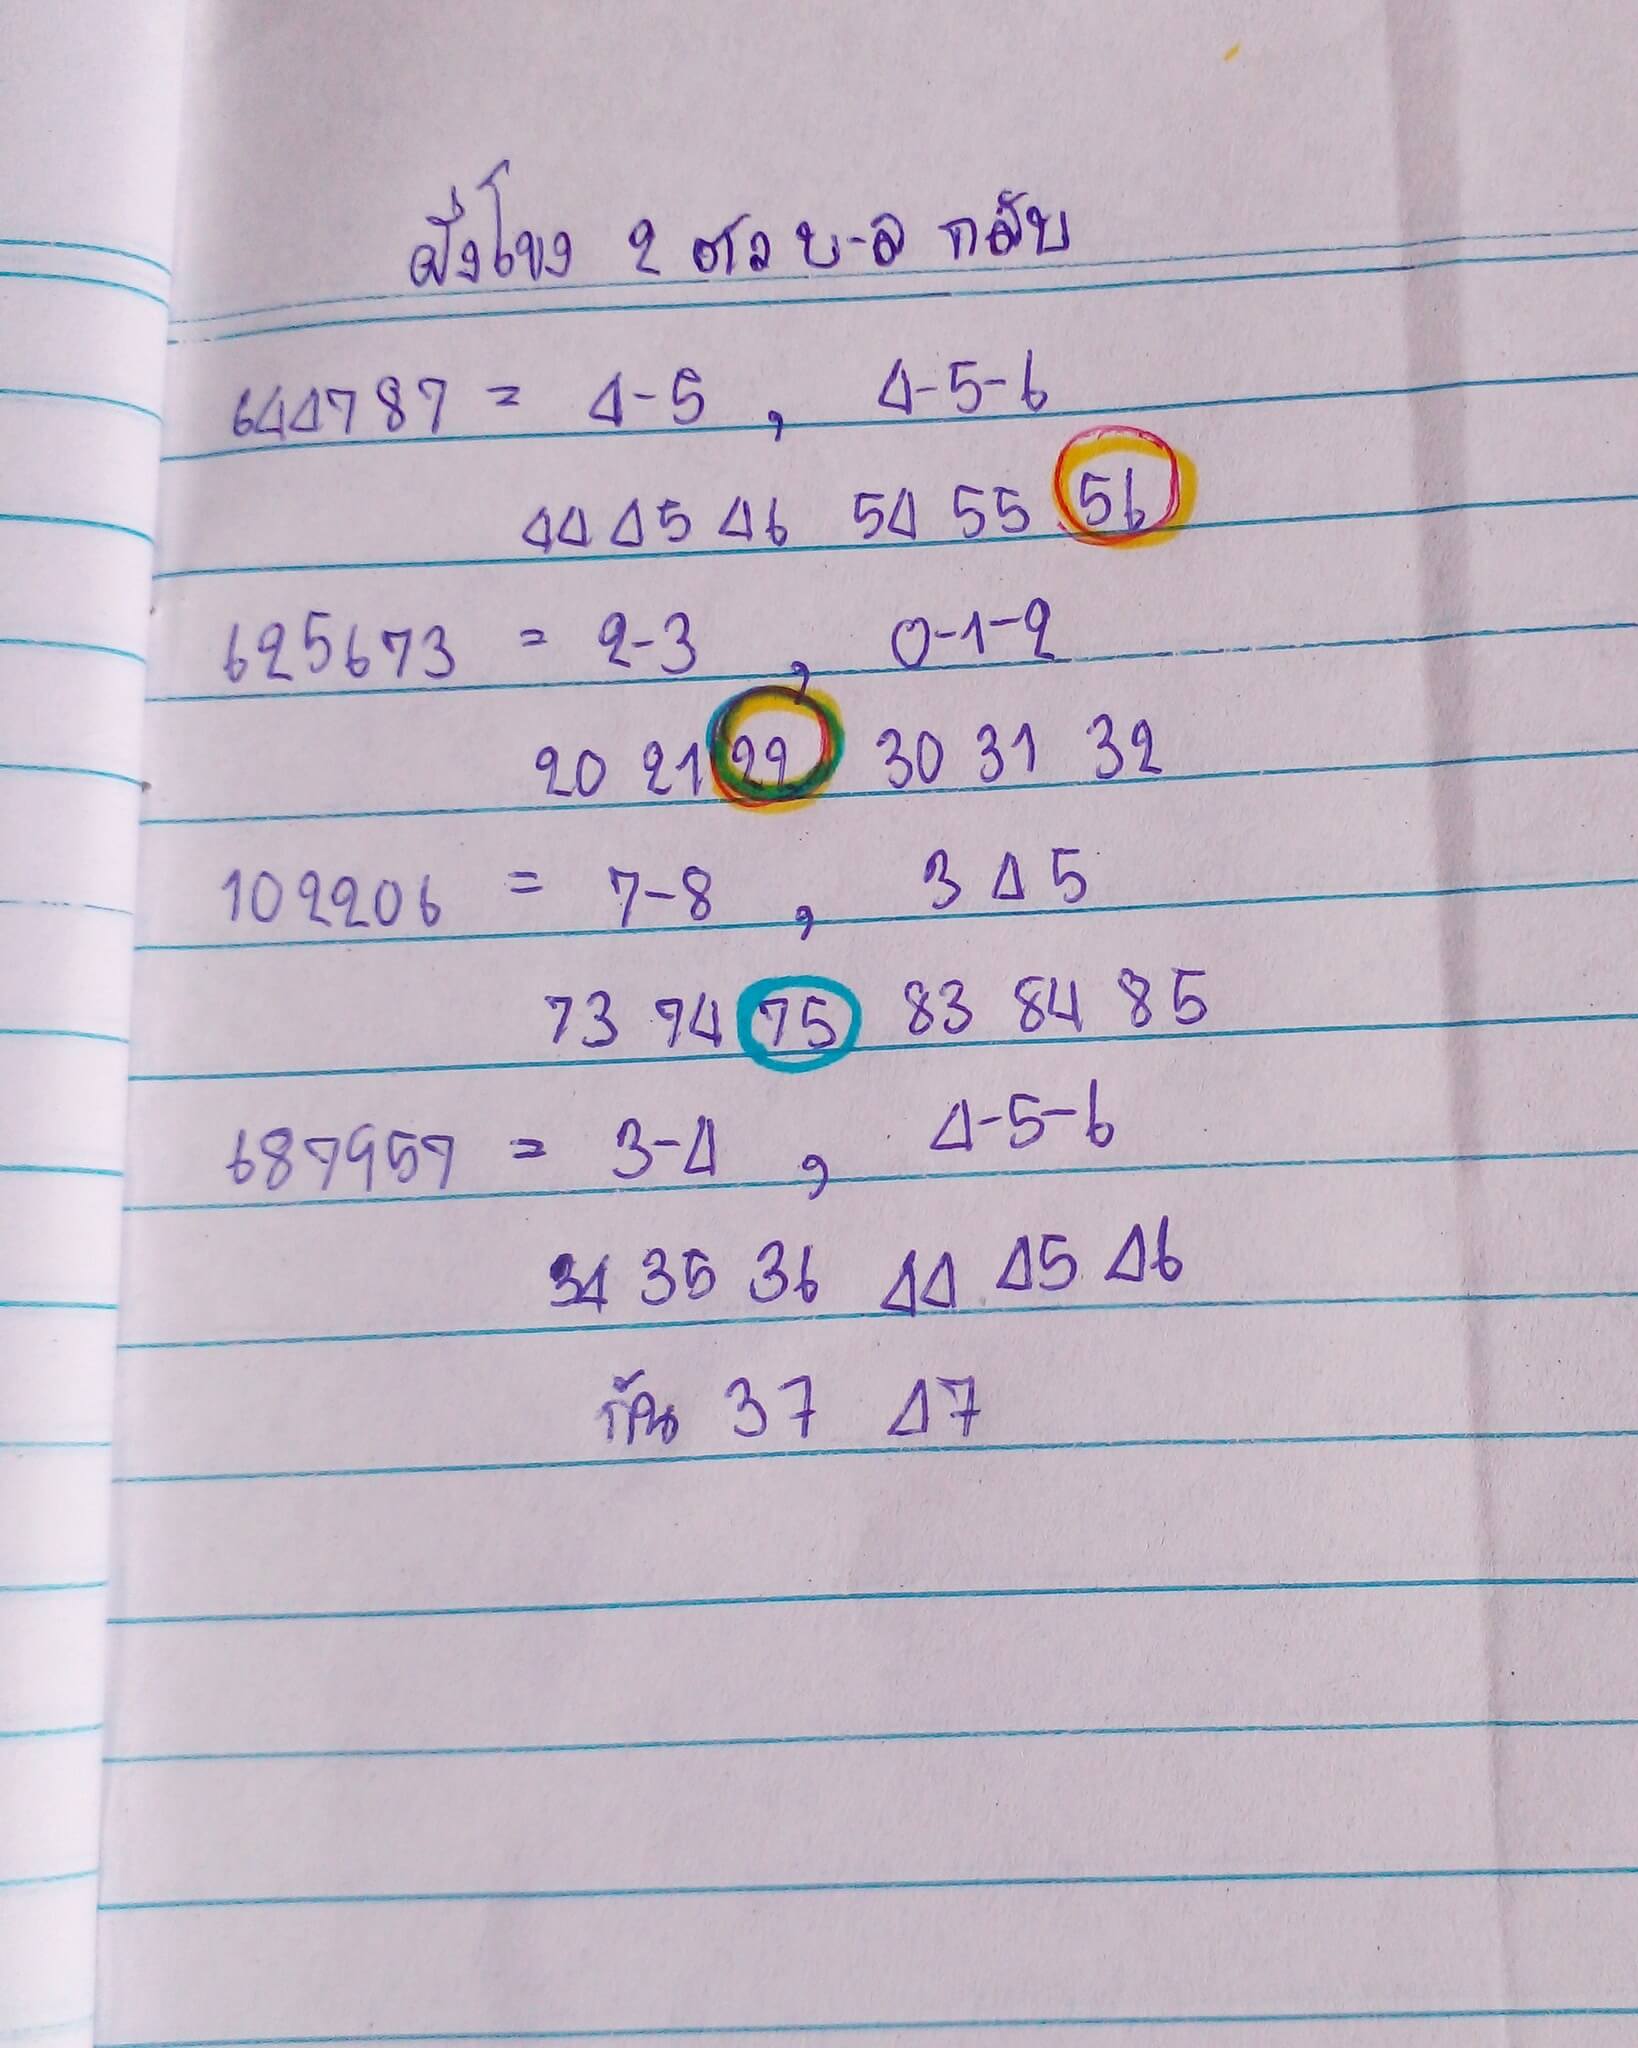 ฝั่งโขง 2 ตัว บ-ล กลับ
644787 = 4-5 , 4-5-6
44 45 46 54 55 56
625673 = 2-3 , 0-1-2
20 21 22 30 31 32
102206 = 7-8 , 3 4 5
73 74 75 83 84 85
687957 = 3-4 , 4-5-6
34 35 36 44 45 46
กัน 37 47